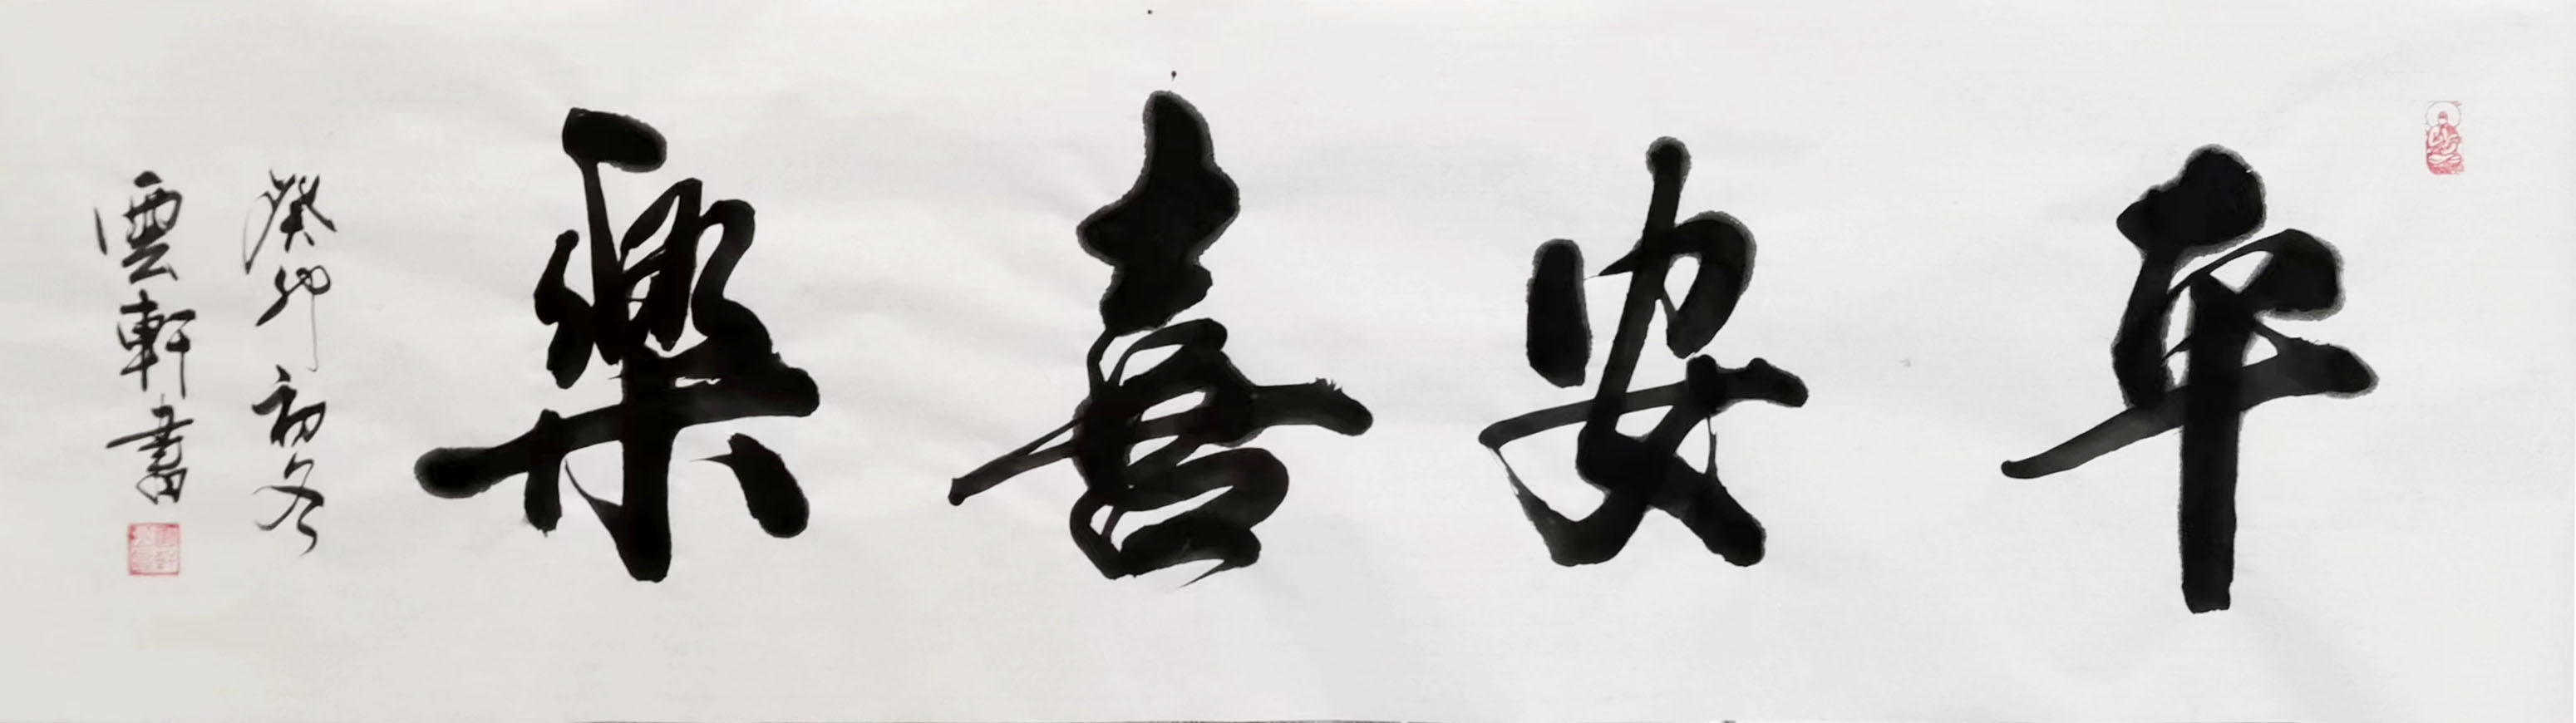 平安喜樂
癸卯初冬
雲軒書